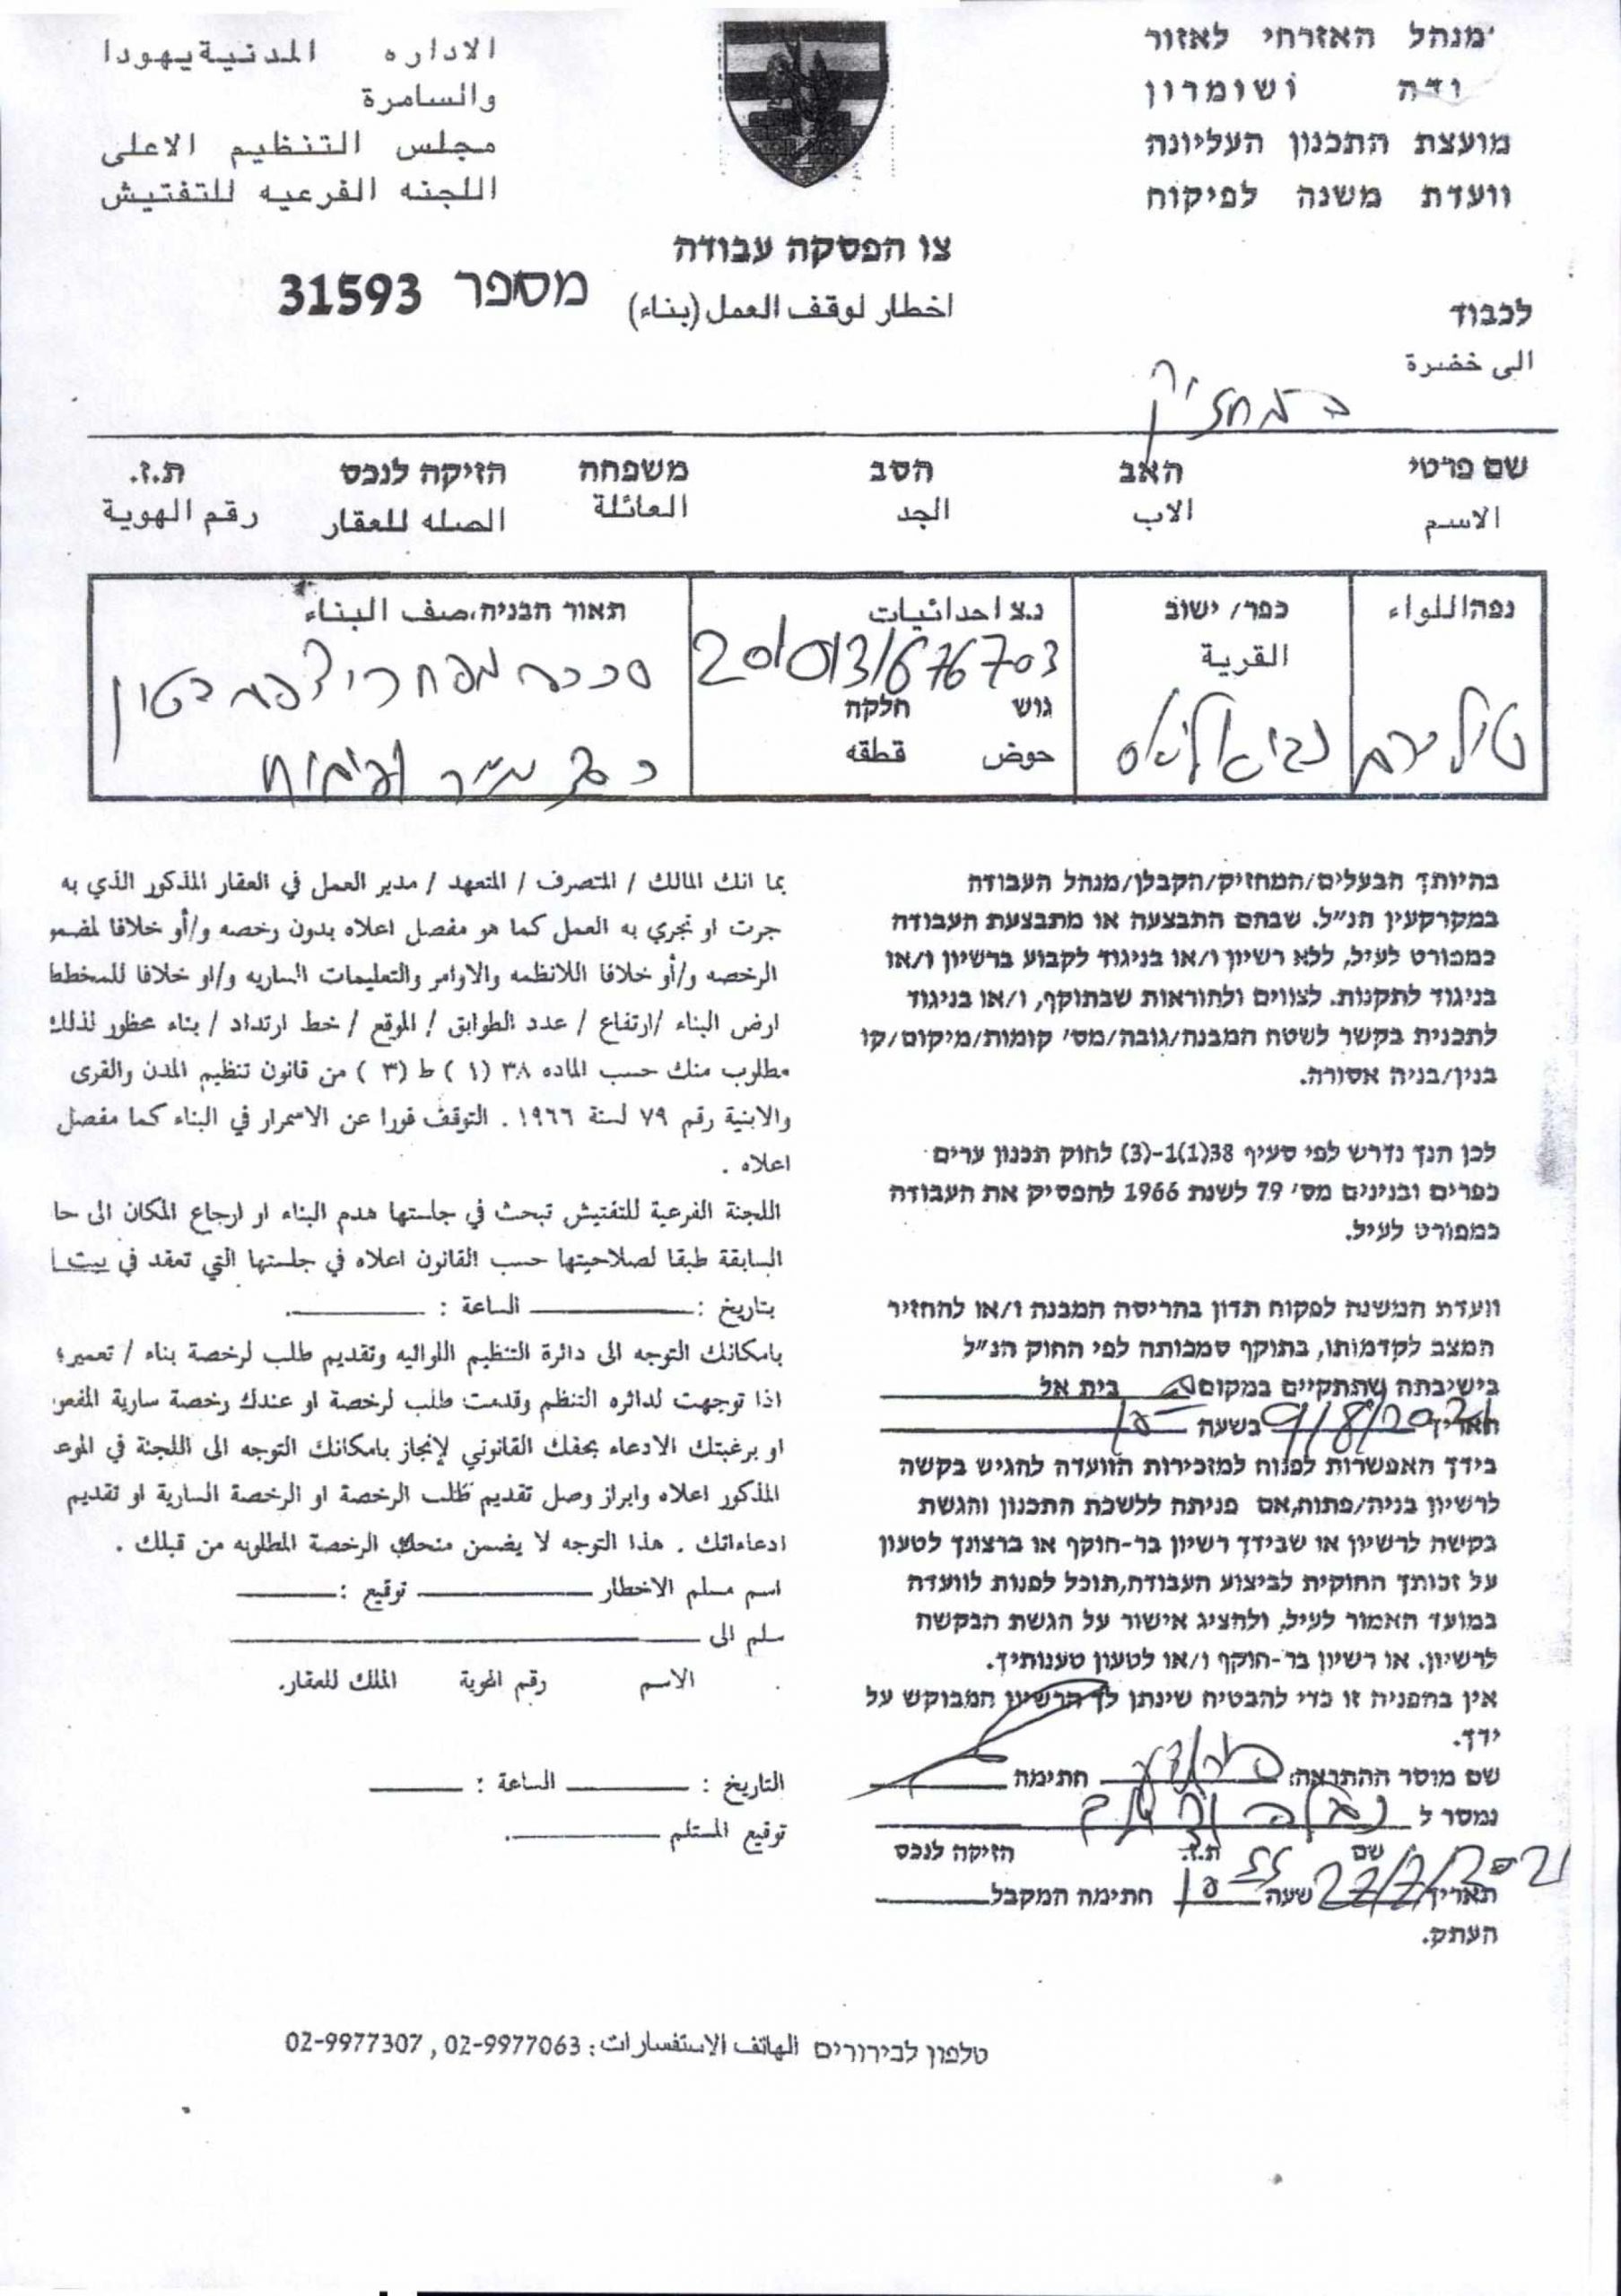 מנהל האזרחי לאזור
ודה ושומרון
מועצת התכנון העליונה
וועדת משנה לפיקוח
الاداره المدنية يهودا
والسامرة
مجلس التنظيم الاعلى
اللجنه الفرعيه للتفتيش
צו הפסקה עבודה
اخطار لوقف العمل (بناء)
מספר 31593
לכבוד
الى خضرة
המחזיק
שם פרטי האב הסב משפחה הזיקה לנכס ת.ז.
الاسم الاب الجد العائلة الصله للعقار رقم الهوية
נפה اللواء כפר/ ישוב נ.צ احداثيات תאור הבניה، صف البناء
القرية
201013/676703
גוש חלקה
حوض قطقه
טול כרם
נבי אליאס
בהיותך הבעלים/המחזיק/הקבלן/מנהל העבודה
במקרקעין הנ"ל. שבהם התבצעה או מתבצעת העבודה
כמפורט לעיל, ללא רשיון ו/או בניגוד לקבוע ברשיון ו/או
בניגוד לתקנות. לצווים ולהוראות שבתוקף, ו/או בניגוד
לתכנית בקשר לשטח המבנה/גובה/מס' קומות/מיקום/קו
בנין/בניה אסורה.
לכן הנך נדרש לפי סעיף 38(1)1-(3) לחוק תכנון ערים
כפרים ובנינים מס' 79 לשנת 1966 להפסיק את העבודה
כמפורט לעיל.
וועדת המשנה לפקוח תדון בהריסה המבנה ו/או להחזיר
המצב לקדמותו, בתוקף סמכותה לפי החוק הנ"ל
בישיבתה שתתקיים במקום בית אל
תאריך 9/8/2021 בשעה 10
בידך האפשרות לפנות למזכירות הוועדה להגיש בקשה
לרשיון בניה/פתוח,אם פניתה ללשכת התכנון והגשת
בקשה לרשיון או שבידך רשיון בר-תוקף או ברצונך לטעון
על זכותך החוקית לביצוע העבודה,תוכל לפנות לוועדה
במועד האמור לעיל, ולהציג אישור על הגשת הבקשה
לרשיון. או רשיון בר-תוקף ו/או לטעון טענותיך.
אין בהפניה זו כדי להבטיח שינתן לך הרשיון המבוקש על
ידך.
שם מוסר ההתראה: חתימה
נמסר ל
שם ת.ז. הזיקה לנכס
תאריך 27/7/2021 שעה 10 55 חתימה המקבל
העתק.
بما انك المالك / المتصرف / المتعهد / مدير العمل في العقار المذكور الذي به
جرت او تجري به العمل كما هو مفصل اعلاه بدون رخصه و/أو خلافا لمضمو
الرخصه و/أو خلافا اللانظمه والاوامر والتعليمات الساريه و/او خلافا للمخطط
ارض البناء /ارتفاع / عدد الطوابق / الموقع / خط ارتداد / بناء محظور لذلك
مطلوب منك حسب الماده ٣٨ (١) ط (٣) من قانون تنظيم المدن والقرى
والابنية رقم ٧٩ لسنة ١٩٦٦ . التوقف فورا عن الاسمرار في البناء كما مفصل
اعلاه .
اللجنة الفرعية للتفتيش تبحث في جلستها هدم البناء او ارجاع المكان الى حا
السابقة طبقا لصلاحيتها حسب القانون اعلاه في جلستها التي تعقد في بيت ا
بتاريخ : الساعة : .
بامكانك التوجه الى دائرة التنظيم اللوائيه وتقديم طلب لرخصة بناء / تعمير؛
اذا توجهت لدائره التنظم وقدمت طلب لرخصة او عندك رخصة سارية المفعو
او برغبتك الادعاء بحقك القانوني لإنجاز بامكانك التوجه الى اللجنة في الموعد
المذكور اعلاه وابراز وصل تقديم طلب الرخصة او الرخصة السارية او تقديم
ادعاءاتك . هذا التوجه لا يضمن منحك الرخصة المطلوبه من قبلك .
اسم مسلم الاخطار توقيع :
سلم الى
الاسم رقم الهوية الملك للعقار.
التاريخ : الساعة :
توقيع المستلم .
טלפון לבירורים الهاتف الاستفسارات: 02-9977063 , 02-9977307